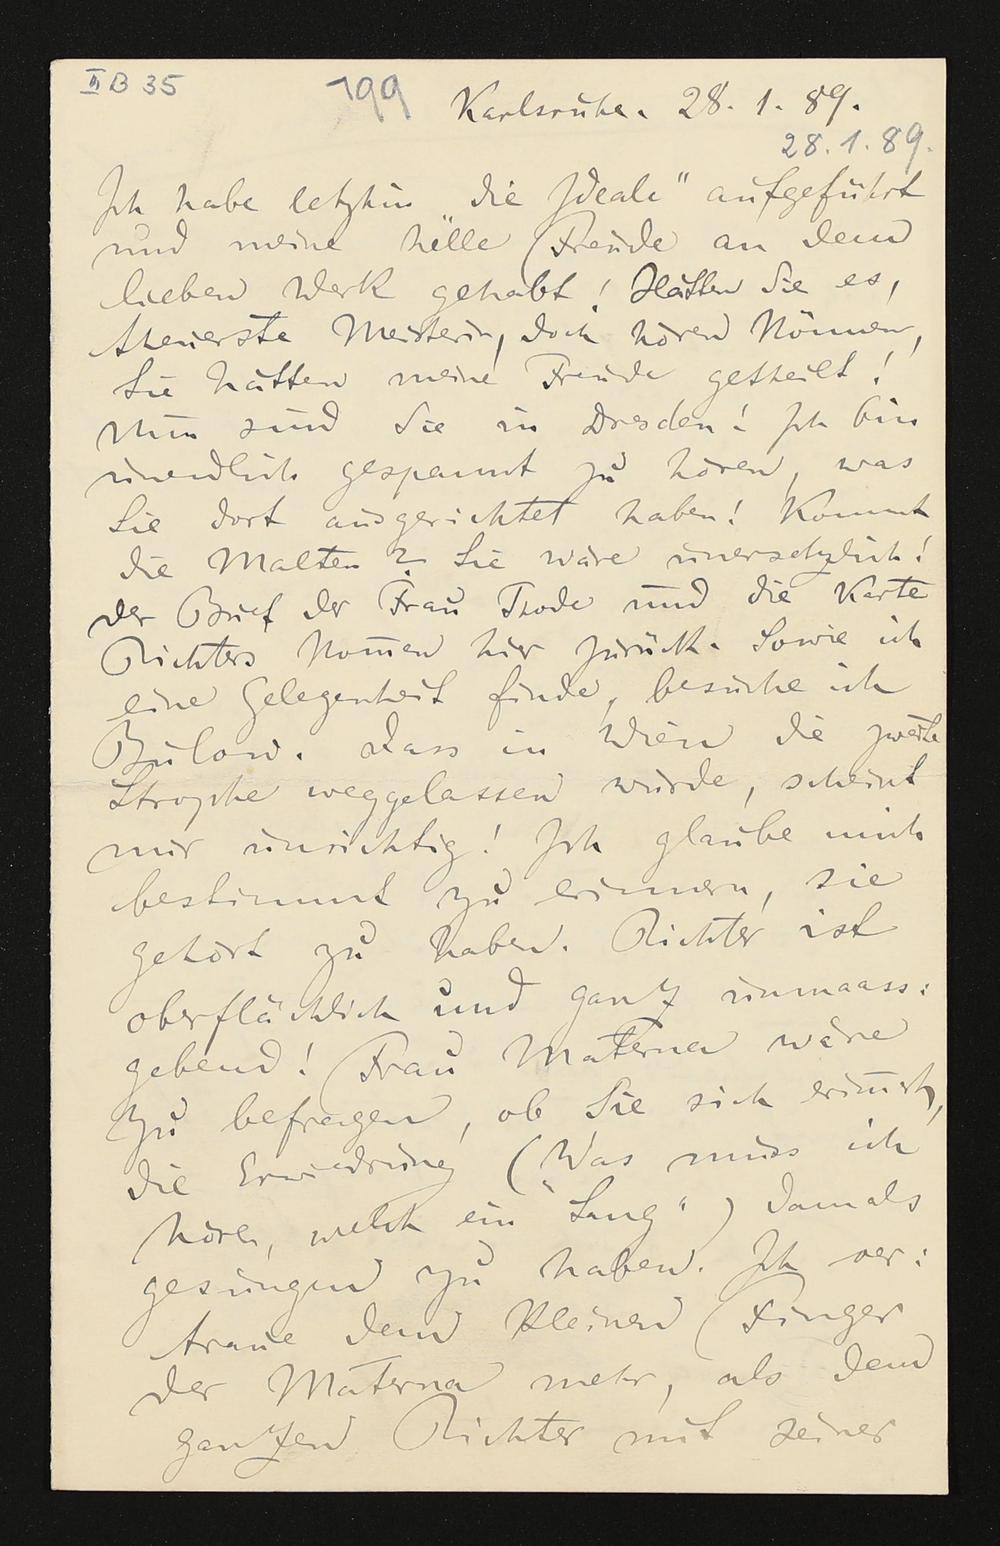 II B 35
199
Karlsruhe. 28. 1. 89.
28. 1. 89.
Ich habe letzhin "die Ideale" aufgeführt
und meine helle Freude an dem
lieben Werk gehabt! Hätten Sie es,
theuerste Meisterin, doch hören können,
Sie hätten meine Freude getheilt!
Nun sind Sie in Dresden! Ich bin
unendlich gespannt zu hören, was
Sie dort ausgerichtet haben! Kommt
die Malten? Sie wäre unersetzlich!
Der Brief der Frau Thode und die Karte
Richters kom̄en hier zurück. Sowie ich
eine Gelegenheit finde, besuche ich
Bülow. Dass in Wien die zweite
Strophe weggelassen wurde, scheint
mir unrichtig! Ich glaube mich
bestimmt zu erinnern, sie
gehört zu haben. Richter ist
oberflächlich und ganz unmaass:
gebend! Frau Materna wäre
zu befragen, ob Sie sich erin̄ert,
die Erwiedrung ("Was muss ich
hören, welch ein Sang") damals
gesungen zu haben. Ich ver:
traue dem kleinen Finger
der Materna mehr, als dem
ganzen Richter mit seiner